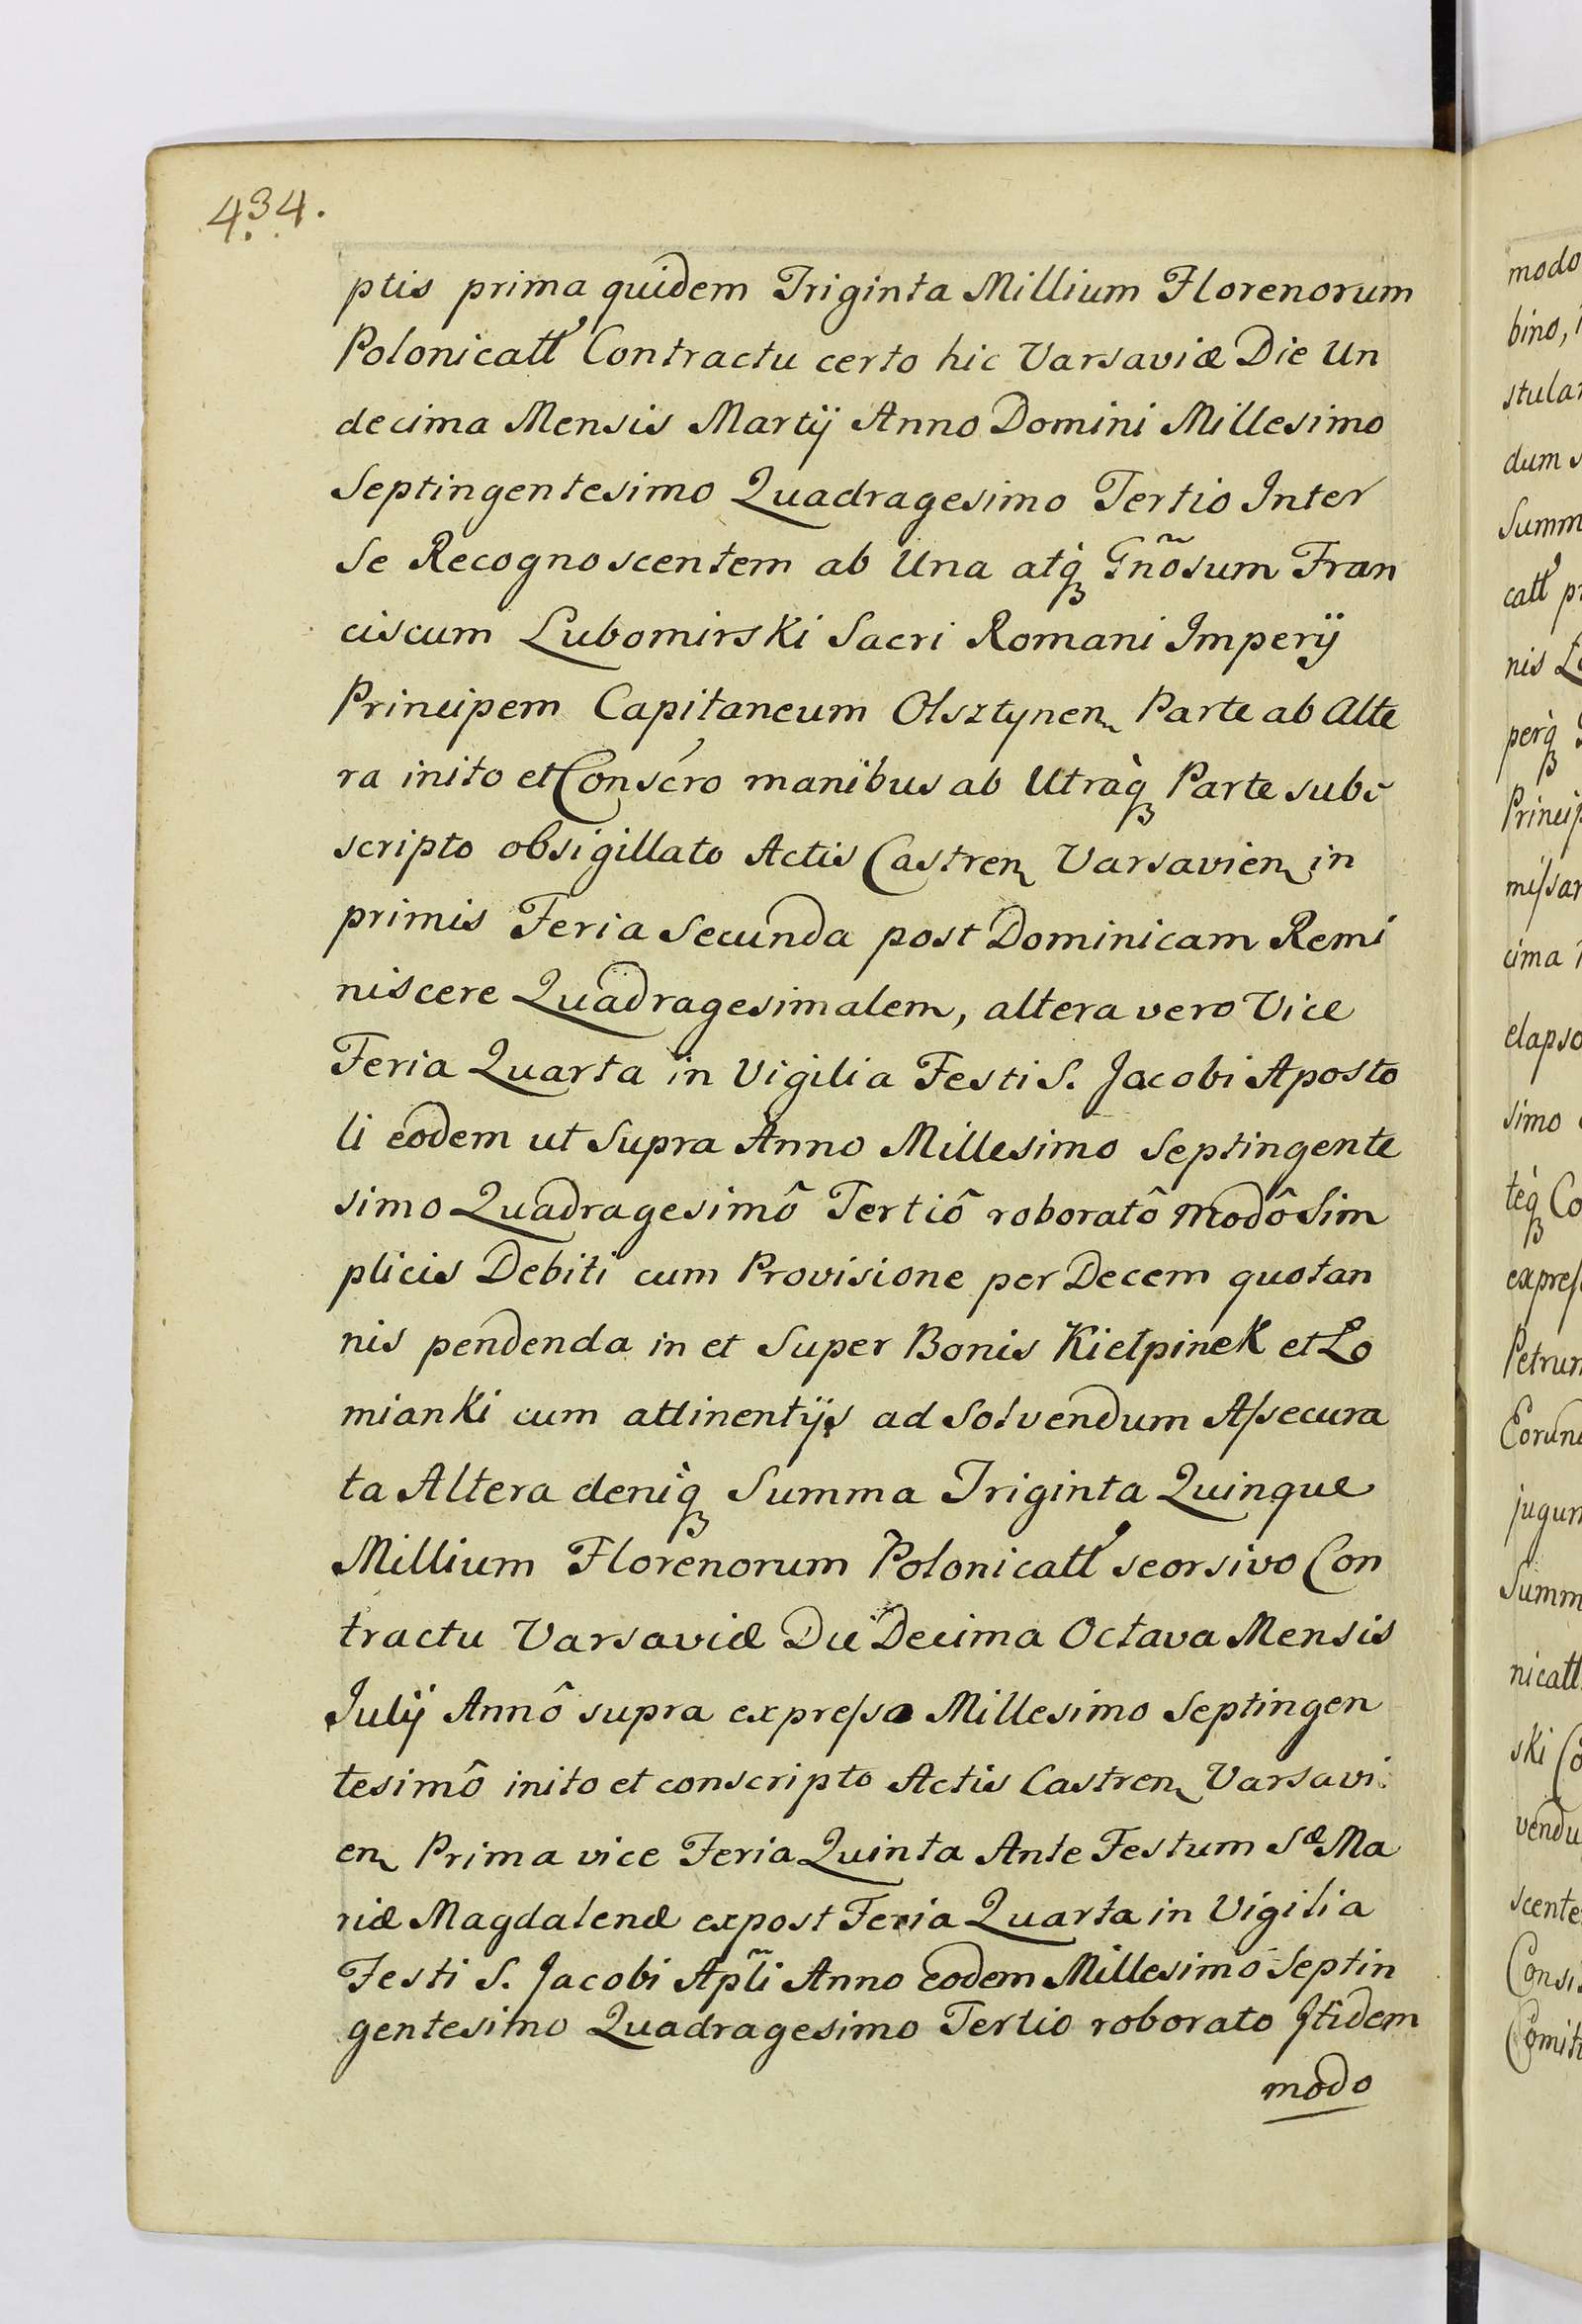 434.
ptis prima quidem Triginta Millium Florenorum
Polonicatt Contractu certo hic Varsaviæ Die Un
decima Mensis Martÿ Anno Domini Millesimo
Septingentesimo Quadragesimo Tertio Inter
Se Recognoscentem ab Una atq̀ȝ Gnõsum Fran
ciscum Lubomirski Sacri Romani Imperÿ
Principem Capitaneum Olsztynen Parte ab Alte
ra inito et Conscro manibus ab Utraq̀ȝ Parte subs
scripto obsigillato Actis Castren Varsavien in
primis Feria Secunda post Dominicam Remi
niscere Quadragesimalem, altera vero Vice
Feria Quarta in Vigilia Festi S. Jacobi Aposto
li eodem ut Supra Anno Millesimo Septingente
simo Quadragesimô Tertiô roboratô modô Sim
plicis Debiti cum Provisione per Decem quotan
nis pendenda in et Super Bonis Kiełpinek et Ło
mianki cum attinentÿs ad Solvendum Aſsecura
ta Altera deniq̀ȝ Summa Triginta Quinque
Millium Florenorum Polonicatt seorsivo Con
tractu Varsaviæ Die Decima Octava Mensis
Julÿ Annô supra expreſso Millesimo Septingen
tesimô inito et conscripto Actis Castren Varsavi
en Prima vice Feria Quinta Ante Festum Sæ Ma
riæ Magdalenæ expost Feria Quarta in Vigilia
Festi S. Jacobi Apl̃i Anno eodem Millesimo Septin
gentesimo Quadragesimo Tertio roborato Itidem
modo
modo
bino,
stular
dum
Summ
catt
nis
perq̀ȝ
Princip
miſsar
cima
elapso
simo
teq̀ȝ Co
expreſ
Petrum
Eorund
jugum
Summ
nicatt
ski
vendu
scente
Consi
Comit